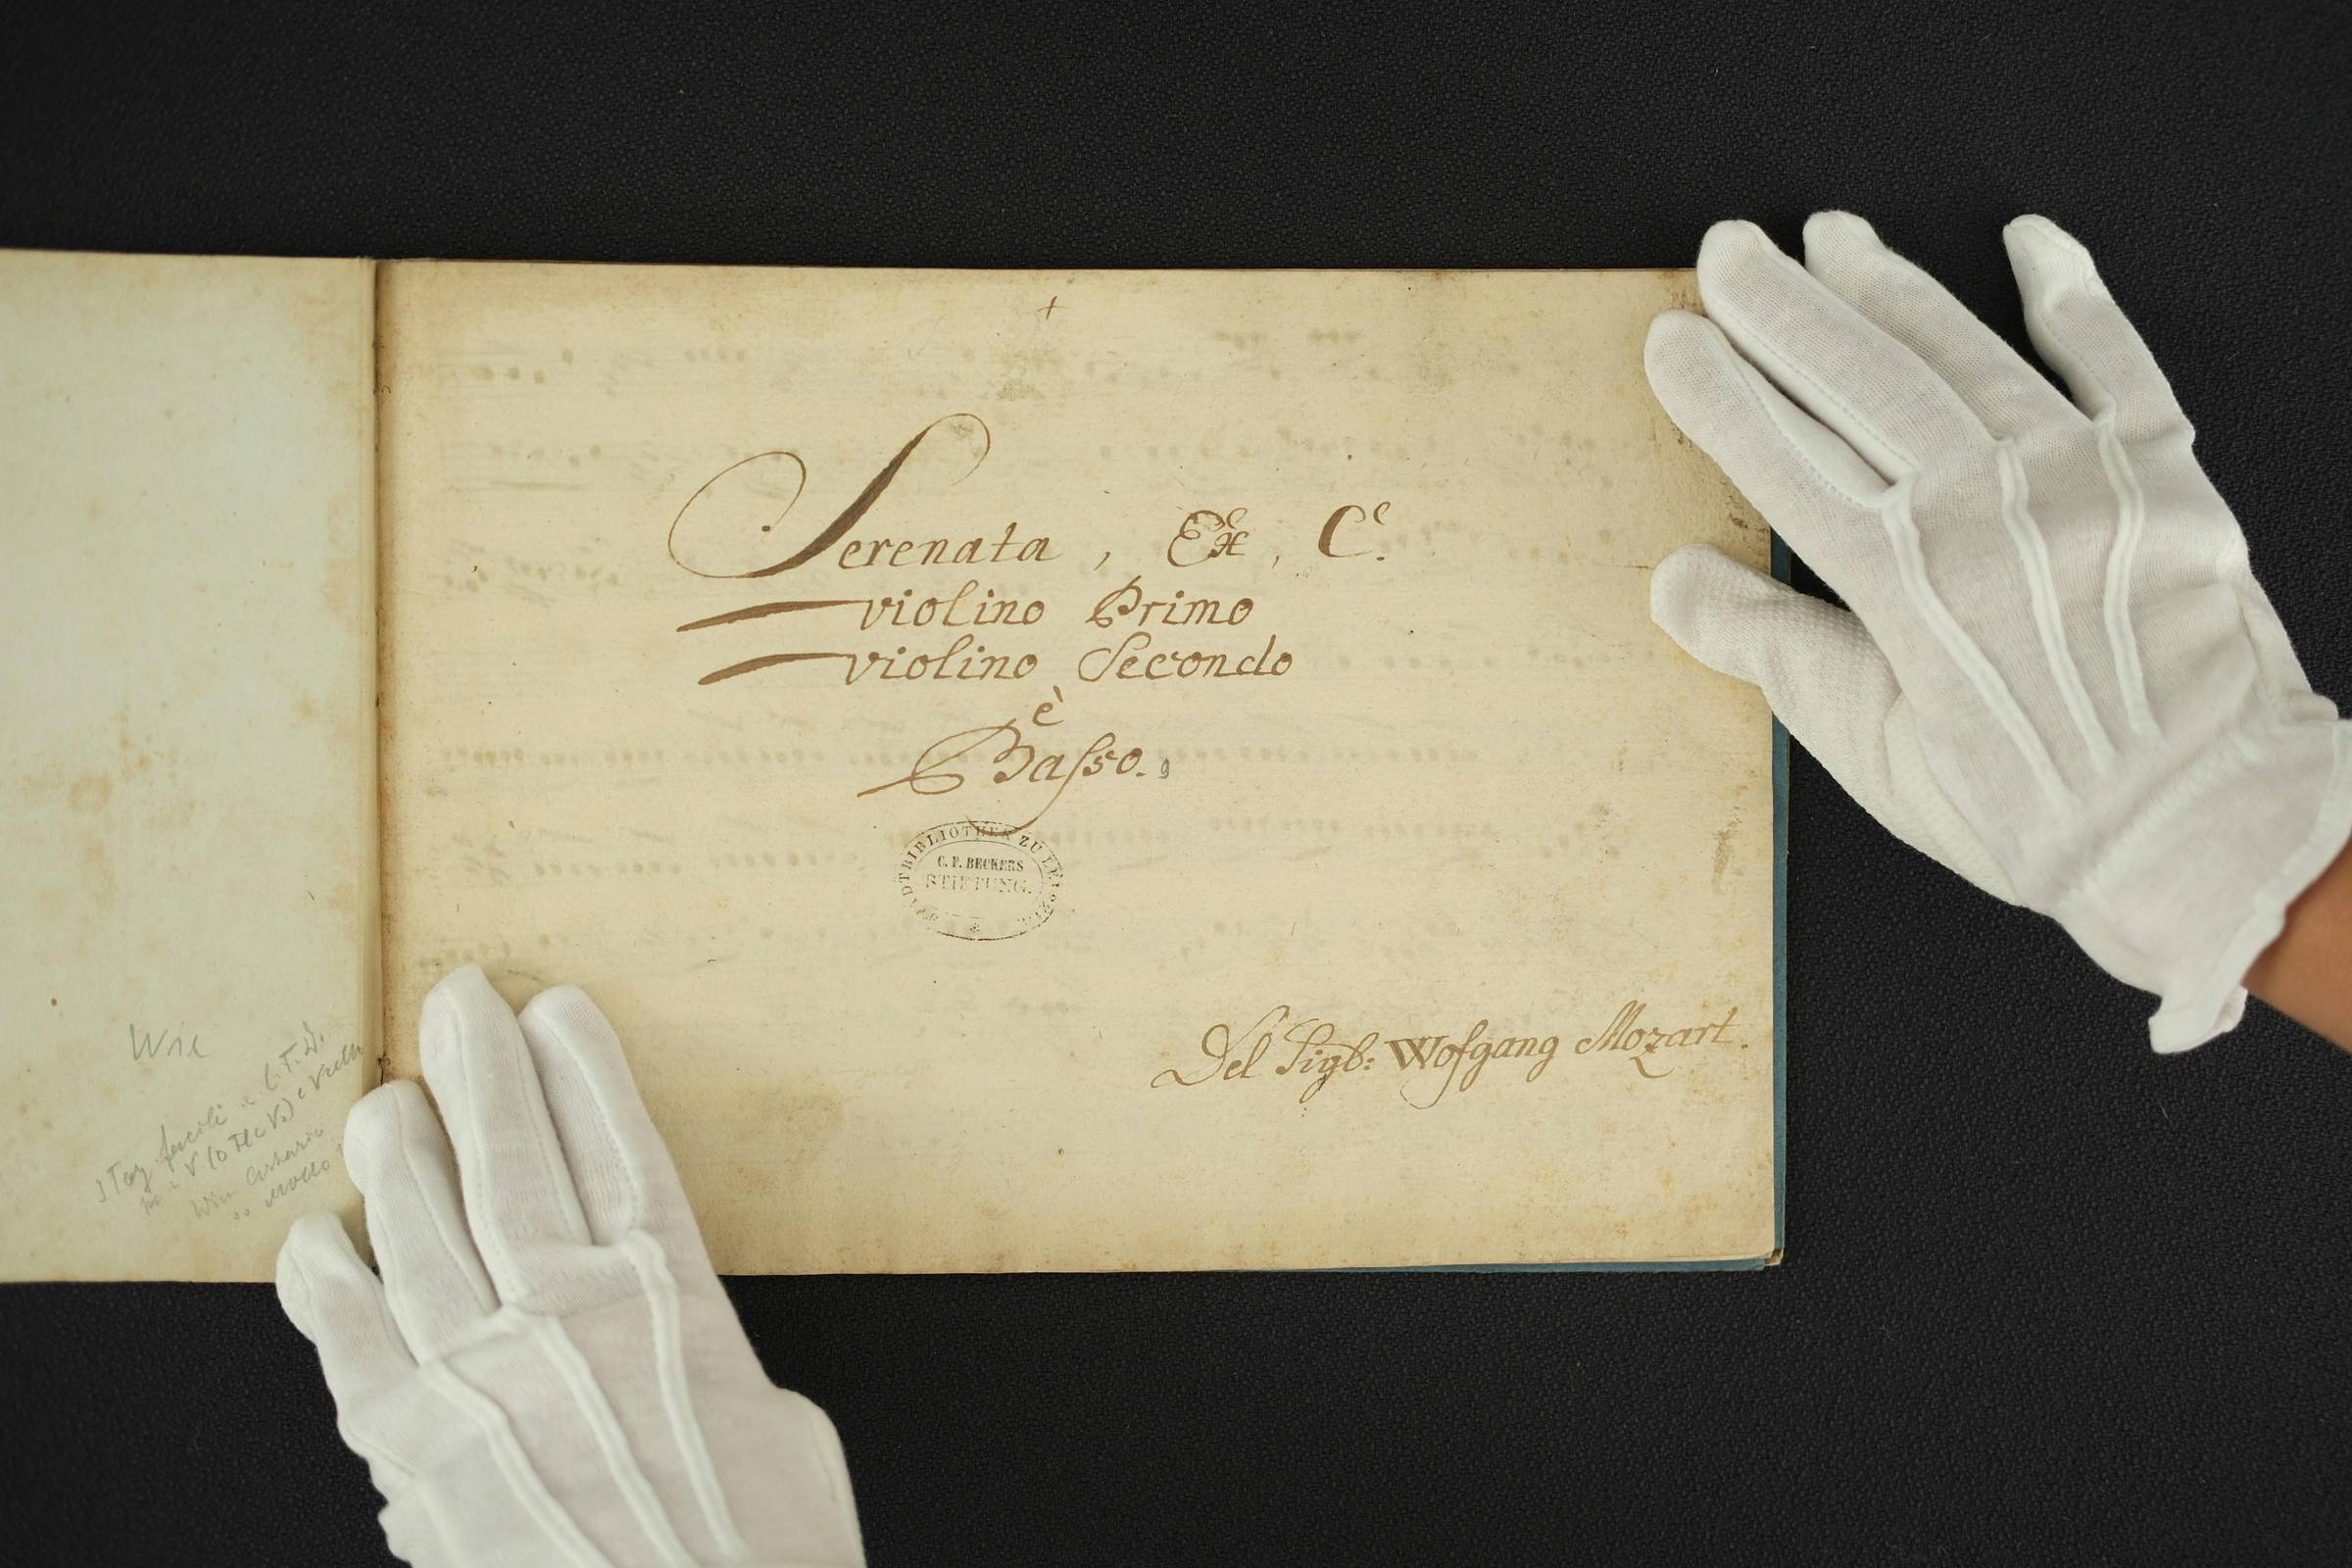 Wie
Serenata, Ex, C.
violino Primo
violino Secondo
è
Basso.
STADTBIBLIOTHEK ZU LEIPZIG
C. F. BECKERS
STIFTUNG.
Del Sigl: Wofgang Mozart.